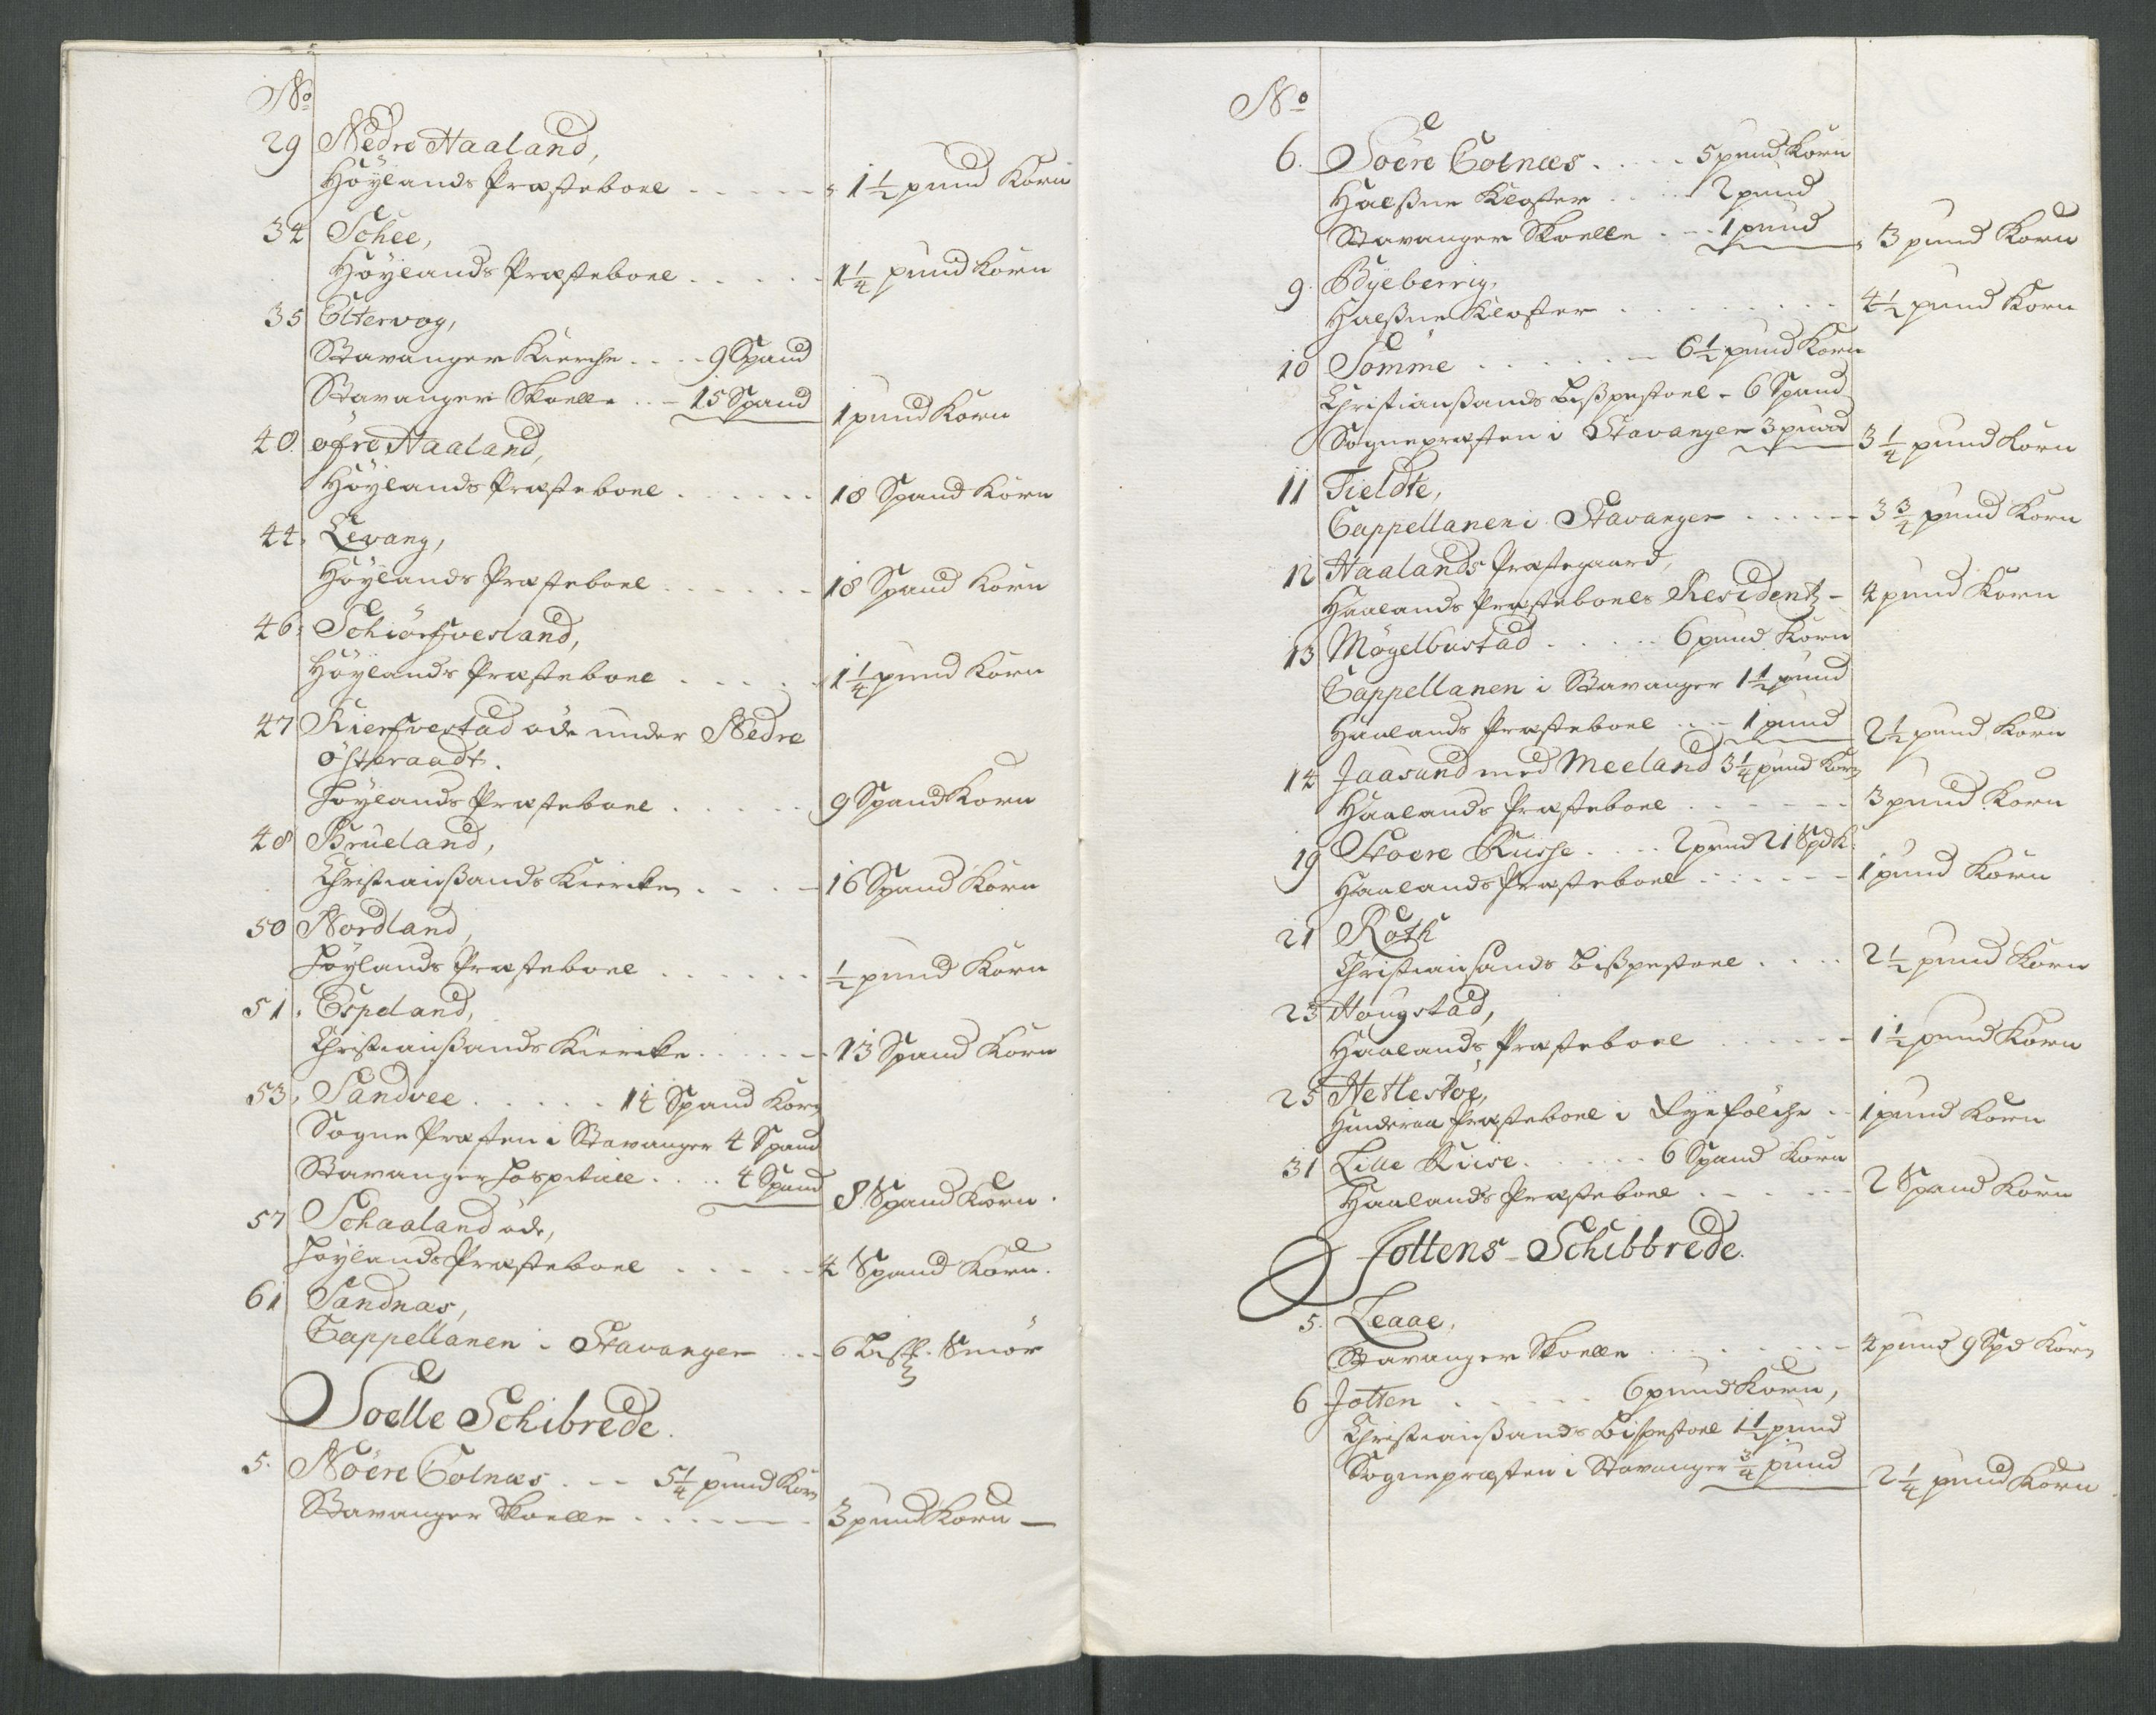 No
29 Nedre Haaland,
Höÿlands Præsteboel . . . . . 1½ pund Korn
34 Schee,
Höÿlands Præsteboel . . . . . 1¼ pund Korn
35 Eltervog,
Stavanger Kierche . . . 9 Spand
Stavanger Skoelle . . 15 Spand 1 pund Korn
40. öfre Haaland,
Höÿlands Præsteboel . . . . . . 18 Spand Korn
44. Levang,
Höÿlands Præsteboel . . . . . . 18 Spand Korn
46. Schiörfsvesland,
Höÿlands Præsteboel . . . . . 1¼ pund Korn
47 Kierfvestad öde under Nedre
Östraadt.
Höylands Præsteboel . . . . . 9 Spand Korn
48 Brueland,
Christianßands Kiercke . . . . 16 Spand Korn
50 Nordland,
Höylands Præsteboel . . . . . . ½ pund Korn
51. Espeland,
Christianßands Kiercke . . . . . 13 Spand Korn
53. Sandvee . . . . . 14 Spand Korn
Sogne Præsten i Stavanger 4 Spand
Stavanger Hospitall . . . . 4 Spand 8 Spand Korn.
57 Schaaland öde,
Höylands Præsteboel . . . . . 4 Spand Korn.
61 Sandnæs,
Cappellanen i Stavanger . . . 6 Bisf. Smör
Soelle Schibrede.
5. Nöere Colnæs . . . 5¼ pund Korn
Stavanger Skoelle . . . . . . 3 pund Korn
No
6. Söere Colnæs . . . . 5 pund Korn
Halßne Kloster . . . . 2 pund
Stavanger Skoelle . . . 1 pund 3 pund Korn
9. Byeberrig,
Halßne Kloster . . . . . . . 4½ pund Korn
10 Somme . . . . . . 6½ pund Korn
Christianßands Bißpestoel - 6 Spand
Sognepræsten i Stavanger 3 pund 3¼ pund Korn
11 Tieldte,
Cappellanen i Stavanger . . . . . 3¾ pund Korn
12 Haalands Præstegaard,
Haalands Præsteboels Residentz - 4 pund Korn
13 Mögelbustad . . . . . 6 pund Korn
Cappellanen i Stavanger 1½ pund
Haalands Præsteboel . . . 1 pund 2½ pund Korn
14 Jaasund med Meeland 3¼ pund Korn
Haalands Præsteboel . . . . . . 3 pund Korn
19 Stoere Riisse . . . . 2 pund 21 Spd K:
Haalands Præsteboel . . . . . . 1 pund Korn
21 Roth
Christiansands Bißpestoel . . . . 2½ pund Korn
23 Hougstad,
Haalands Præsteboel . . . . . . 1½ pund Korn
25 Hetlestöe,
Hinderaa Præsteboel i Ryefölche . . 1 pund Korn
31 Lille Riise . . . . . . 6 Spand Korn
Haalands Præsteboel . . . . . . 2 Spand Korn
Jottens Schibbrede.
5. Leaae,
Stavanger Skoelle . . . . . . . 4 pund 9 Spd Korn
6 Jotten . . . . . . 6 pund Korn,
Christianßands Bispestoel 1½ pund
Sognepræsten i Stavanger ¾ pund 2¼ pund Korn